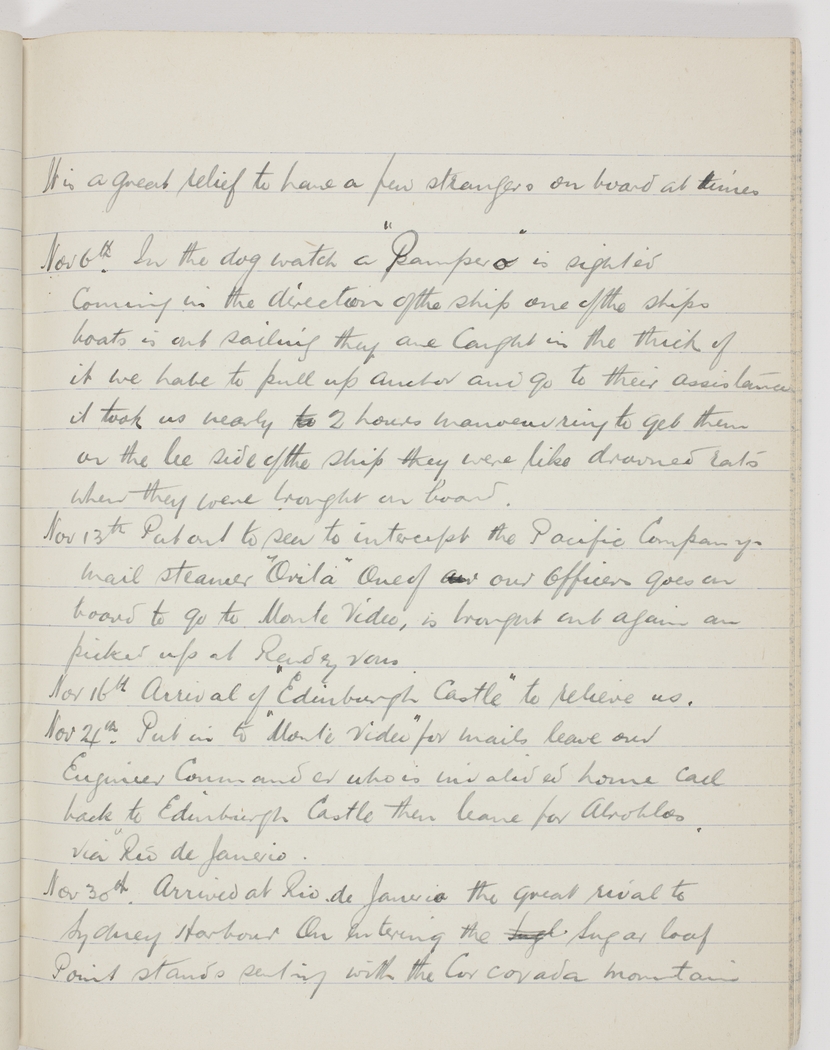 It is a great relief to have a few strangers on board at times
Nov 6th. In the dog watch a "Pampero" is sighted
Coming in the direction of the ship one of the ships
boats is out sailing they are Caught in the thick of
it we have to pull up anchor and go to their assistance
it took us nearly to 2 hours manoeuvring to get them
on the lee side of the ship they were like drowned rats
when they were brought on board.
Nov 13th Put out to sea to intercept the Pacific Companys
mail steamer "Orita" One of our our Officers goes on
board to go to Monte Video, is brought out again an
picked up at Rendezvous
Nov 16th Arrival of "Edinburgh Castle" to relieve us.
Nov 24th. Put in to "Monte Video" for mails leave our
Engineer Commander who is invalided home call
back to Edinburgh Castle then leave for Abrohlos.
via "Rio de Janerio.
Nov 30th. Arrived at Rio de Janerio the great rival to
Sydney Harbour On entering the Sugl Sugar loaf
Point stands with the Corcovada mountain